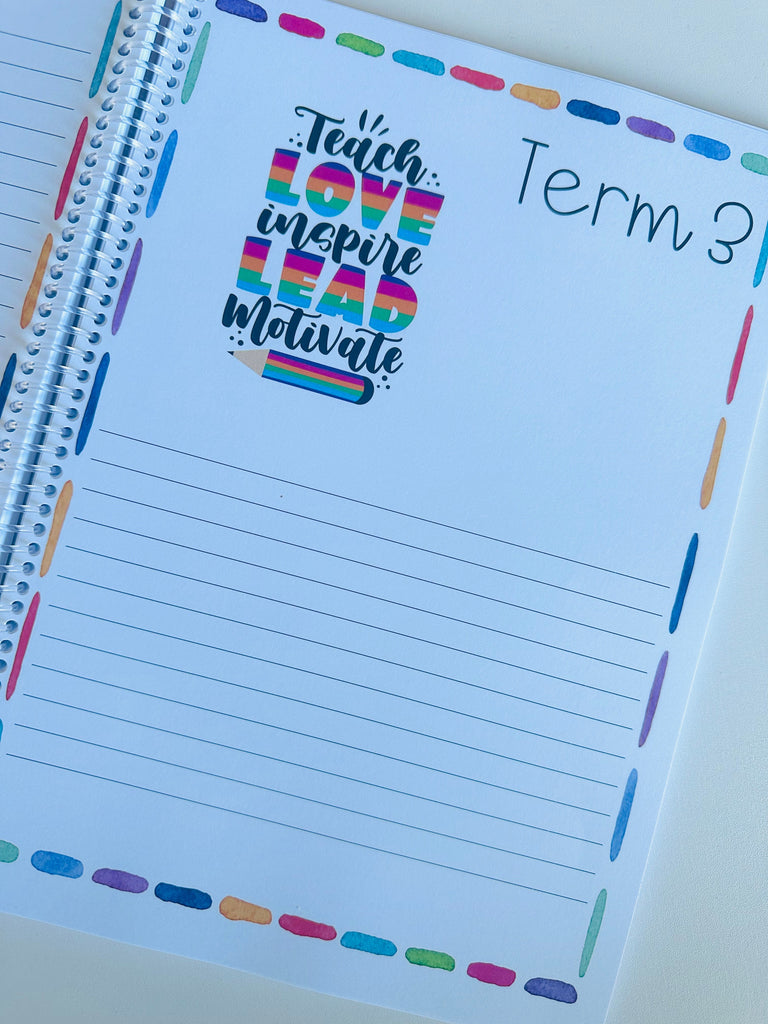 Teach
LOVE
inspire
LEAD
Motivate
Term 3